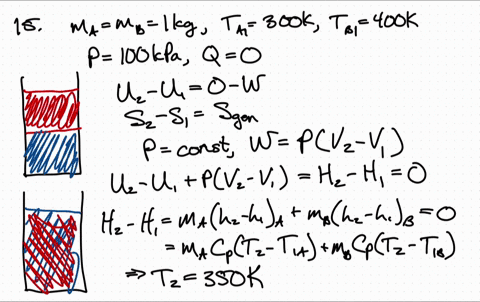 15. m_A = m_B = 1 kg, T_A1 = 300K, T_B1 = 400K
P = 100 kPa, Q = O
U_2 - U_1 = O - W
S_2 - S_1 = S_gen
P = const, W = P(V_2 - V_1)
U_2 - U_1 + P(V_2 - V_1) = H_2 - H_1 = O
H_2 - H_1 = m_A(h_2 - h_1)_A + m_B(h_2 - h_1)_B = O
= m_A C_P(T_2 - T_1A) + m_B C_P(T_2 - T_1B)
⇒ T_2 = 350K